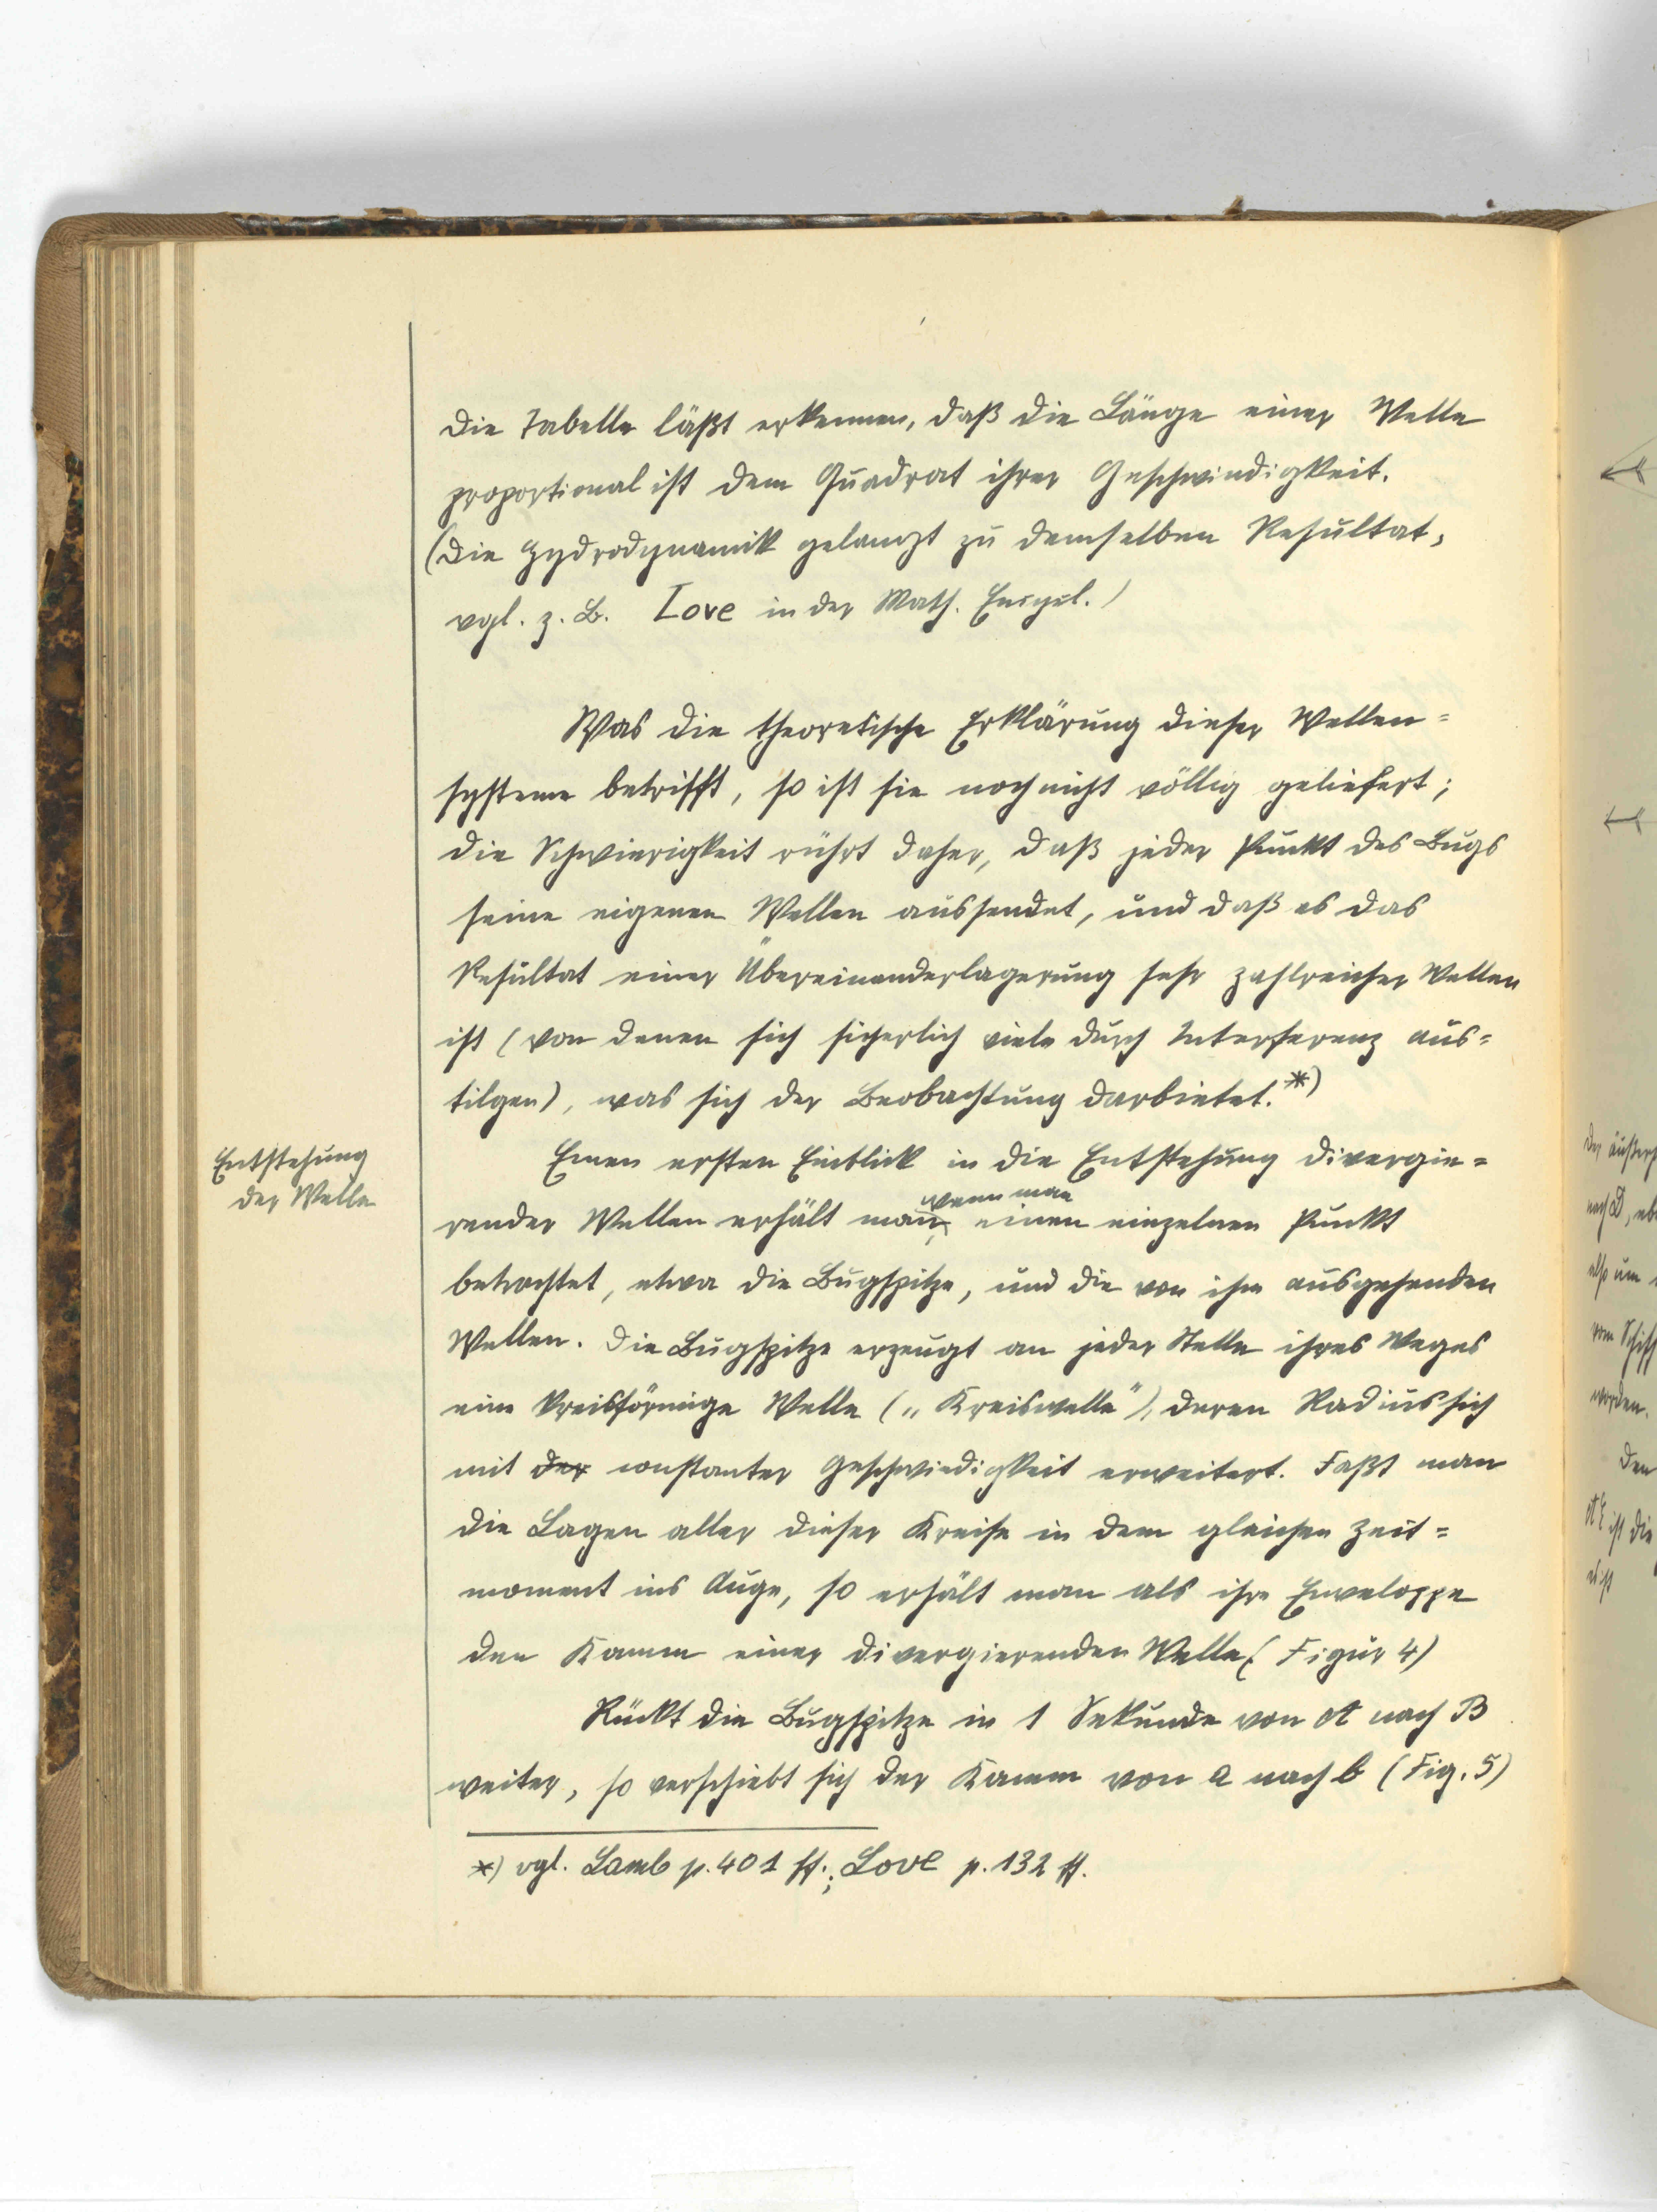 Die Tabelle läßt erkennen, daß die Länge einer Welle
proportional ist dem Quadrat ihrer Geschwindigkeit.
(Die Hydrodynamik gelangt zu demselben Resultat,
vgl. z. B. Love in der Math. Encycl.)
Was die theoretische Erklärung dieser Wellen=
systeme betrifft, so ist sie noch nicht völlig geliefert;
die Schwierigkeit rührt daher, daß jeder Punkt des Bugs
seine eigenen Wellen aussendet, und daß es das
Resultat einer Übereinanderlagerung sehr zahlreicher Wellen
ist (von denen sich sicherlich viele durch Interferenz aus=
tilgen), was sich der Beobachtung darbietet.*)
Entstehung
der Welle
Einen ersten Einblick in die Entstehung divergie=
render Wellen erhält man, wenn man einen einzelnen Punkt
betrachtet, etwa die Bugspitze, und die von ihm ausgehenden
Wellen. Die Bugspitze erzeugt an jeder Stelle ihres Weges
eine kreisförmige Welle („Kreiswelle"), deren Radius sich
mit der constanter Geschwindigkeit erweitert. Faßt man
die Lagen aller dieser Kreise in dem gleichen Zeit=
moment ins Auge, so erhält man als ihre Enveloppe
den Kamm einer divergierenden Welle (Figur 4)
Rückt die Bugspitze in 1 Sekunde von A nach B
weiter, so verschiebt sich der Kamm von a nach b (Fig. 5)
*) vgl. Lamb p. 401 ff.; Love p. 132 ff.
der äußer
nach D, eb
also um
vom Schiff
worden.
Den
AE ist die